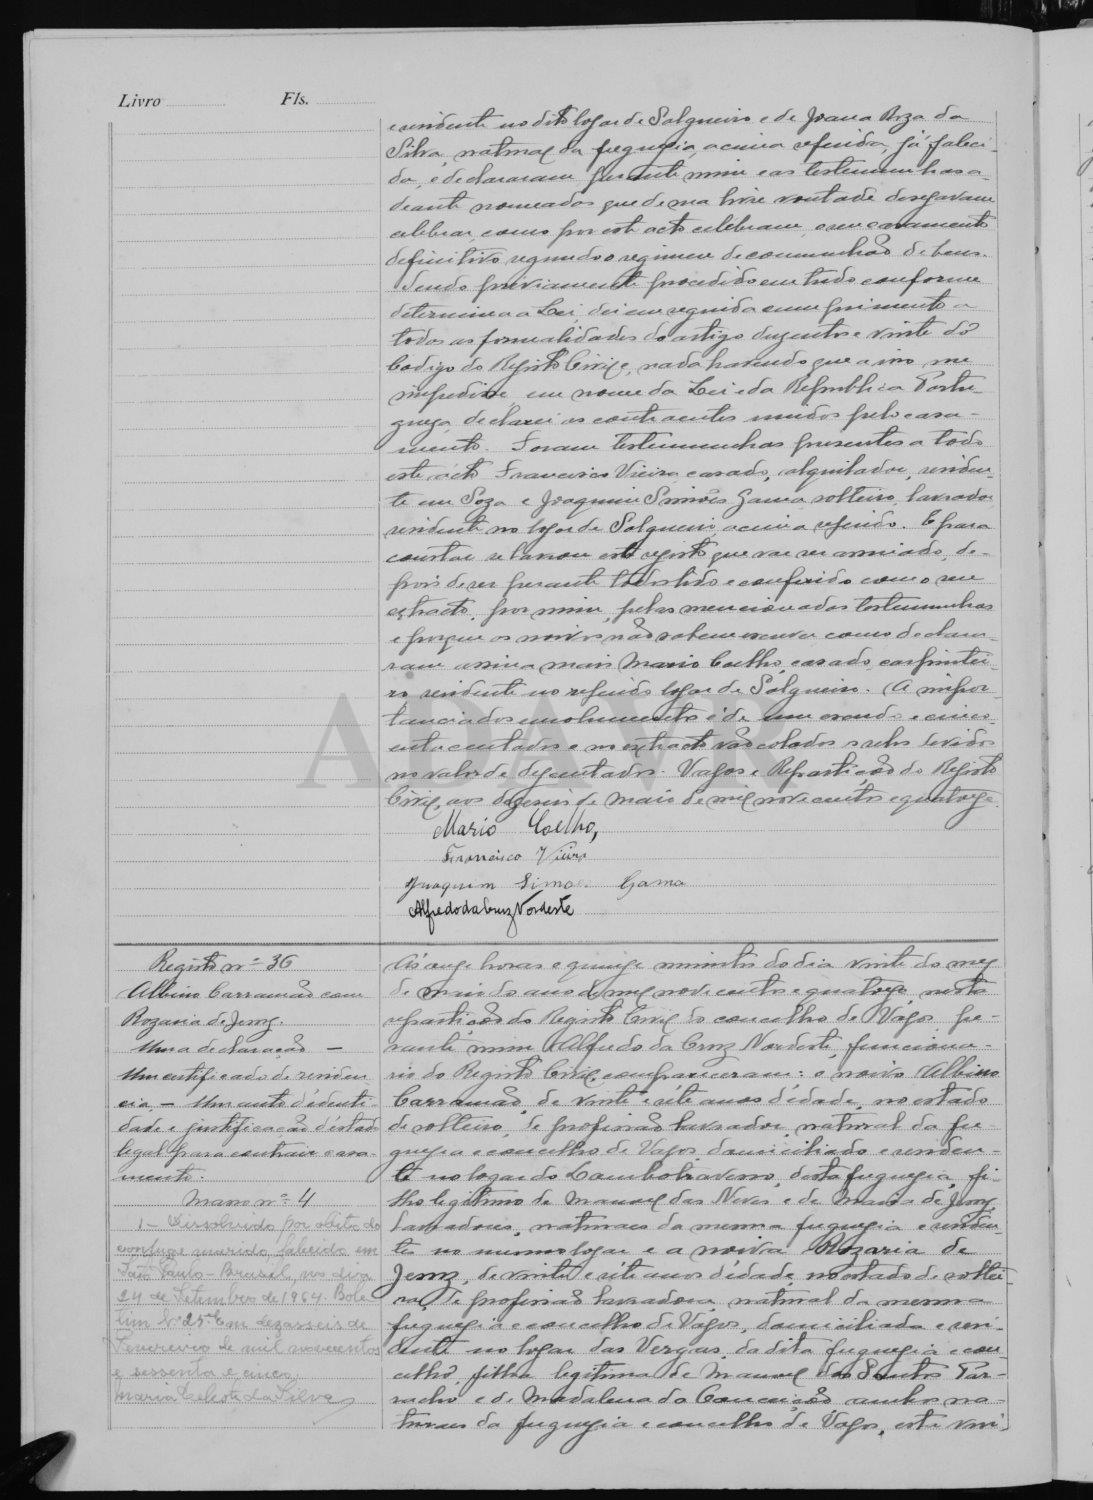 Livro
Fls.
e residente no dito logar de Salgueiro e de Joana Roza da
Silva, natural da freguesia acima referida, já faleci-
da, e declararam perante mim e as testemunhas a-
deante nomeadas que de sua livre vontade desejavam
celebrar, como por este acto celebram, o seu casamento
definitivo segundo o regimen de comunhão de bens.
Tendo previamente procedido em tudo conforme
determina a Lei, dei em seguida cumprimento a
todas as formalidades do artigo duzentos e vinte do
Codigo do Registo Civil e, nada havendo que a isso me
impedisse, em nome da Lei e da Republica Portu-
gueza, declarei os contraentes unidos pelo casa-
mento. Foram testemunhas presentes a todo
este acto Francisco Vieira, casado, alquilador, residen-
te em Soza e Joaquim Simões Gama, solteiro, lavrador
residente no logar de Salgueiro acima referido. E para
constar se lavrou este registo que vae ser assinado, de-
pois de ser perante todos lido e conferido com o seu
extracto, por mim, pelas mencionadas testemunhas
e porque os noivos não sabem escrever como declara-
ram assina mais Mario Coelho, casado, carpintei-
ro residente no referido logar de Salgueiro. A impor-
tancia dos emolumentos é de um escudo e cinco-
enta centavos e no extracto vão colados selos devidos
no valor de dez centavos. Vagos e Repartição do Registo
Civil, aos dezeseis de Maio de mil novecentos e quatorze.
Mario Coelho,
Francisco Vieira
Joaquim Simões Gama
Alfredo da Cruz Nordeste
Registo nº 36
Albino Carramão com
Rozaria de Jesus.
Uma declaração —
Um certificado de residen-
cia. — Um auto d'identi-
dade e justificação d'estado
legal para contrair casa-
mento.
Maço nº 4
1 - Dissolvido por obito do
conjuge marido, falecido em
São Paulo - Brasil, no dia
24 de Setembro de 1964. Bole-
tim Nº 25. Em dezasseis de
Fevereiro de mil novecentos
e sessenta e cinco.
Maria Celeste da Silva
Ás onze horas e quinze minutos do dia vinte do mez
de maio do ano de mil novecentos e quatorze, nesta
repartição do Registo Civil do concelho de Vagos, pe-
rante mim Alfredo da Cruz Nordeste, funciona-
rio do Registo Civil, compareceram: o noivo Albino
Carramão, de vinte e sete anos d'edade, no estado
de solteiro, de profissão lavrador, natural da fre-
guesia e concelho de Vagos, domiciliado e residen-
te no logar do Lombo, desta freguesia, fi-
lho legitimo de Manoel das Neves e de Maria de Jesus,
lavradores, naturaes da mesma freguesia e residen-
tes no mesmo logar e a noiva Rozaria de
Jesus, de vinte e sete anos d'edade, no estado de soltei-
ra, de profissão lavradora, natural da mesma
freguesia e concelho de Vagos, domiciliada e resi-
dente no logar das Vergas, da dita freguesia e con-
celho, filha legitima de Manoel dos Santos Par-
racho e de Madalena da Conceição ambos na-
turaes da freguesia e concelho de Vagos, este vivi-
ADAVR